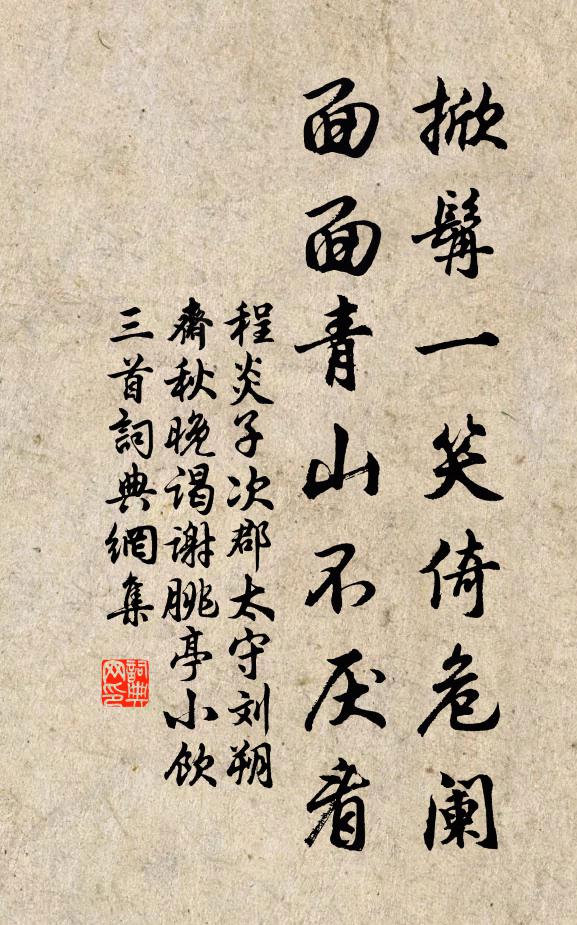 掀髯一笑倚危阑
面面青山不厌看
程炎子次郡太守刘朔
斋秋晚谒谢朓亭小饮
三首詞典網集
詞典网印